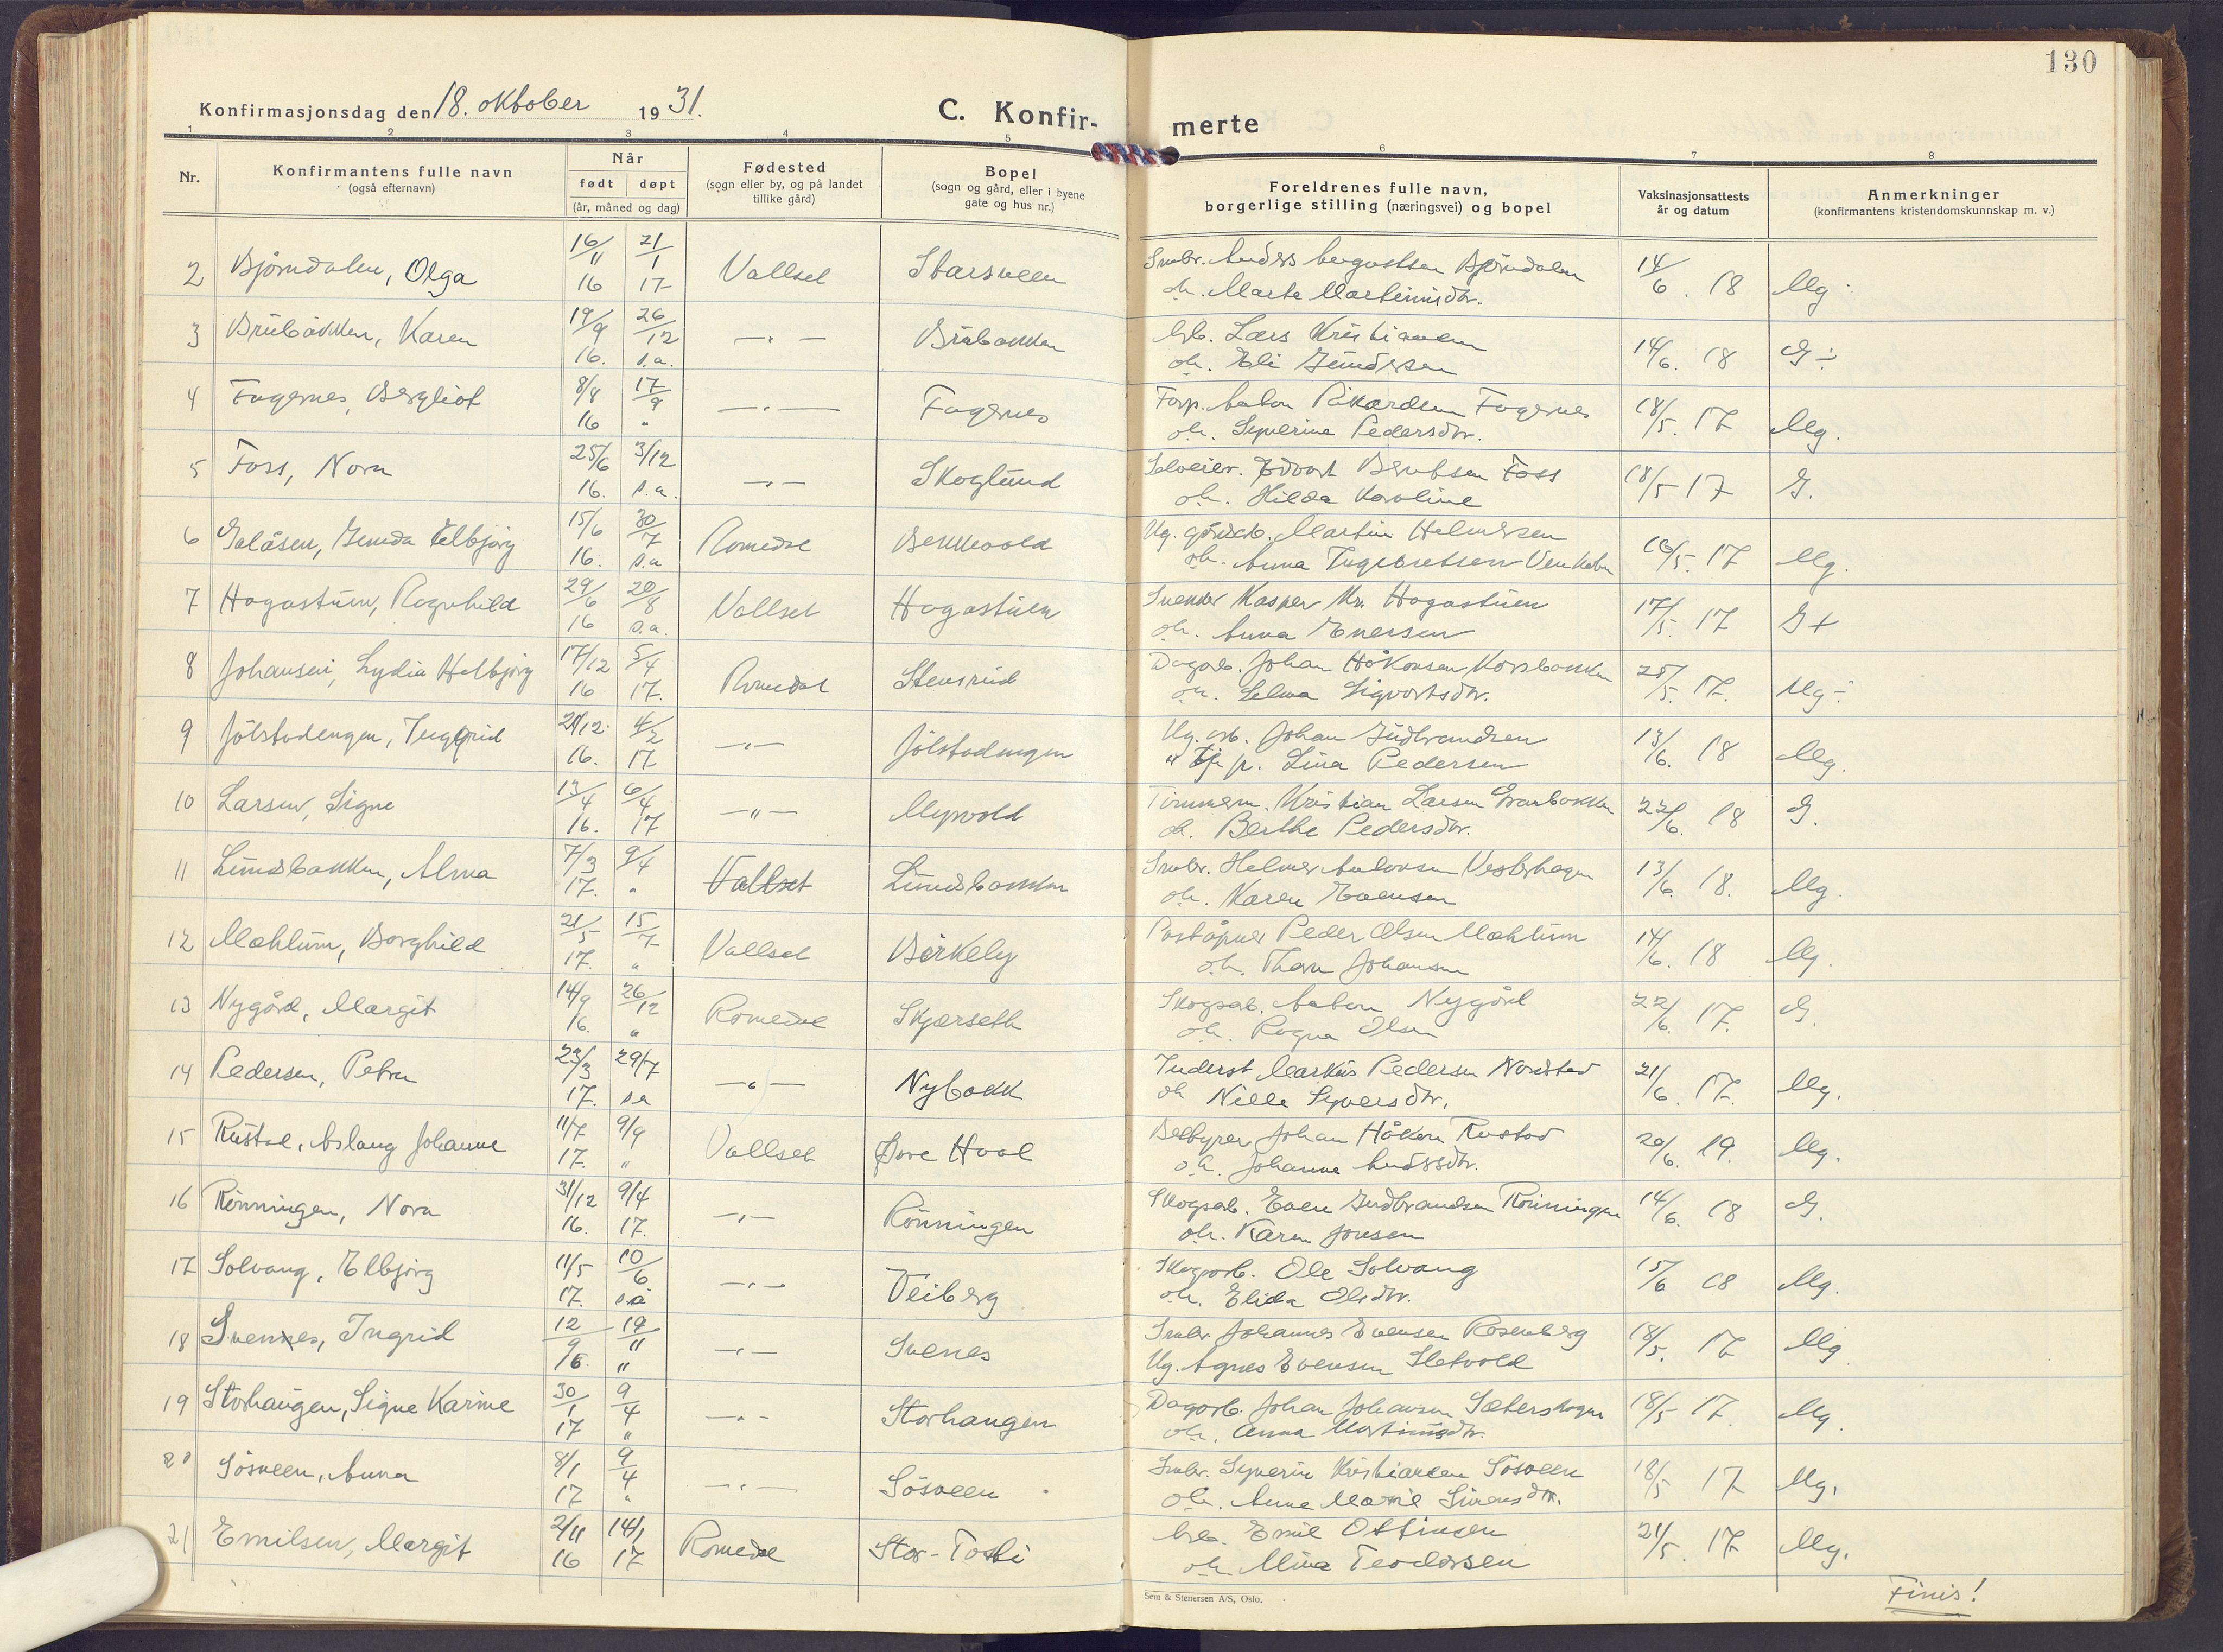 130
Konfirmasjonsdag den 18. oktober 1931.
C. Konfir-
merte
1 2 3 4 5 6 7 8
Nr.
Konfirmantens fulle navn
(også efternavn)
Når
født døpt
(år, måned og dag)
Fødested
(sogn eller by, og på landet
tillike gård)
Bopel
(sogn og gård, eller i byene
gate og hus nr.)
Foreldrenes fulle navn,
borgerlige stilling (næringsvei) og bopel
Vaksinasjonsattests
år og datum
Anmerkninger
(konfirmantens kristendomskunnskap m. v.)
2 Bjørndalen, Olga 16/11 16 21/1 17 Vallset Starsveen Smbr. Anders Bjørndalen 14/6. 18 Mg
oh. Marte Martinusdtr.
3 Brubakken, Karen 19/9 16. 26/12 s.a. —"— Brubakken Lars Kristiansen 14/6. 18 G ÷
oh. Eli Gundersen
4 Fagernes, Bergliot 8/8 16 17/9 " —"— Fagernes Forp. Anton Rikardsen Fagernes 18/5. 17 Mg.
oh. Syverine Pedersdtr.
5 Foss, Nora 25/6 16. 3/12 s.a. —"— Skoglund Edvart Berntsen Foss 18/5 17 G.
oh. Hilda Karoline
6 Galåsen, Gunda Elbjørg 15/6 16. 30/7 s.a Romedal Bekkevold Ug. gårdarb. Martin Helmersen 18/5. 17 Mg.
oh. Anna
7 Hagastuen, Ragnhild 29/6 16 20/8 s.a. Vallset Hagastuen Kasper Kr. Hagastuen 17/5. 17 G+
oh. Anna Enersen
8 Johansen, Lydia Helbjørg 17/12 16 5/4 17. Romedal Stensrud Dagarb. Johan Håkonsen Korsbakken 25/5. 17. Mg ÷
oh. Selma Sigvartsdtr.
9 Jølstadengen, Inggrid 21/12 16. 4/2 17 —"— Jølstadengen Ug. arb. Johan Gudbrandsen 13/6. 18 Mg.
" Tj. p. Lina Pedersen
10 Larsen, Signe 13/4 16. 6/4 17 —"— Myrvold Tømmerm. Kristian Larsen Granbakken 22/6. 18 G.
oh. Berthe Pedersdtr.
11 Lundsbakken, Alma 7/3 17. 9/4 " Vallset Lundsbakken Smbr. Helmer Antonsen Vesterhagen 13/6. 18. Mg.
oh. Karen Evensen
12 Mæhlum, Borghild 21/5 17. 15/7 " Vallset Birkely Poståpner Peder Olsen Mæhlum 14/6. 18 Mg.
oh. Thora Johansen
13 Nygård, Margit 14/9 16. 26/12 " Romedal Skjærseth Skogsarb. Anton Nygård 22/6. 17. G.
oh. Ragna Olsen
14 Pedersen, Petra 23/3 17. 29/7 sa —"— Nybakk Inderst Markus Pedersen Nordstad 21/6. 17. Mg.
oh Nille Syversdtr.
15 Rustad, Aslaug Johanne 11/7 17. 9/9 " Vallset Øvre Hval Bestyrer Johan Håkon Rustad 20/6. 19. Mg.
oh. Johanne Andersdtr.
16 Rønningen, Nora 31/12 16. 9/4 17. —"— Rønningen Skogsarb. Even Gudbrandsen Rønningen 14/6. 18 G.
oh. Karen Jonsen
17 Solvang, Elbjørg 11/5 17. 10/6 s.a —"— Veiberg Skogsarb. Ole Solvang 15/6 18 Mg.
oh. Elida Olsdtr.
18 Svennes, Ingrid 12/9 16. 19/11 " —"— Svenes Smbr. Johannes Evensen Rosenberg 18/5. 17 Mg
Ug. Agnes Evensen Sletvold
19 Storhaugen, Signe Karine 30/1 17 9/4 " —"— Storhaugen Dagarb. Johan Johansen Sæterskogen 18/5 17. Mg.
oh. Anna Martinusdtr.
20 Søsveen, Anna 8/1 17 9/4 " —"— Søsveen Smbr. Syverin Kristiansen Søsveen 18/5 17 Mg.
oh. Anne Marie Simensdtr.
21 Emilsen, Margit 2/11 16 14/1 17 Romedal Stor-Tosti Emil Ottinsen 21/5. 17 Mg.
oh. Mina Teodorsen
Sem & Stenersen A/S, Oslo.
Finis!